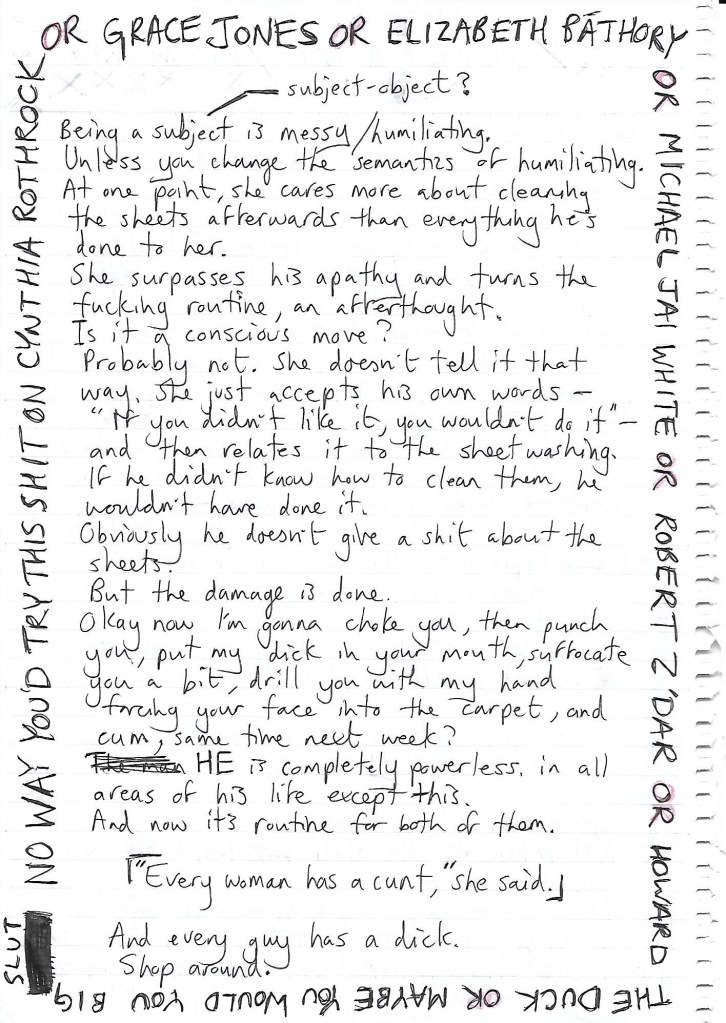 OR GRACE JONES OR ELIZABETH BÁTHORY
subject-object?
Being a subject is messy/humiliating.
Unless you change the semantics of humiliating.
At one point, she cares more about cleaning
the sheets afterwards than everything he's
done to her.
She surpasses his apathy and turns the
fucking routine, an afterthought.
Is it a conscious move?
Probably not. She doesn't tell it that
way. She just accepts his own words –
"If you didn't like it, you wouldn't do it" –
and then relates it to the sheet washing.
If he didn't know how to clean them, he
wouldn't have done it.
Obviously he doesn't give a shit about the
sheets.
But the damage is done.
Okay now I'm gonna choke you, then punch
you, put my dick in your mouth, suffocate
you a bit, drill you with my hand
forcing your face into the carpet, and
cum, same time next week?
The man HE is completely powerless. in all
areas of his life except this.
And now it's routine for both of them.
"Every woman has a cunt," she said.
And every guy has a dick.
Shop around.
OR MICHAEL JAI WHITE OR ROBERT Z'DAR OR HOWARD
THE DUCK OR MAYBE YOU WOULD YOU BIG
SLUT
NO WAY YOU'D TRY THIS SHIT ON CYNTHIA ROTHROCK